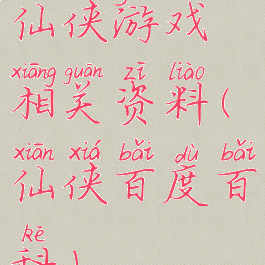 仙侠游戏
xiāng guān zī liào
相关资料(
xiān xiá bǎi dù bǎi
仙侠百度百
kē
科)